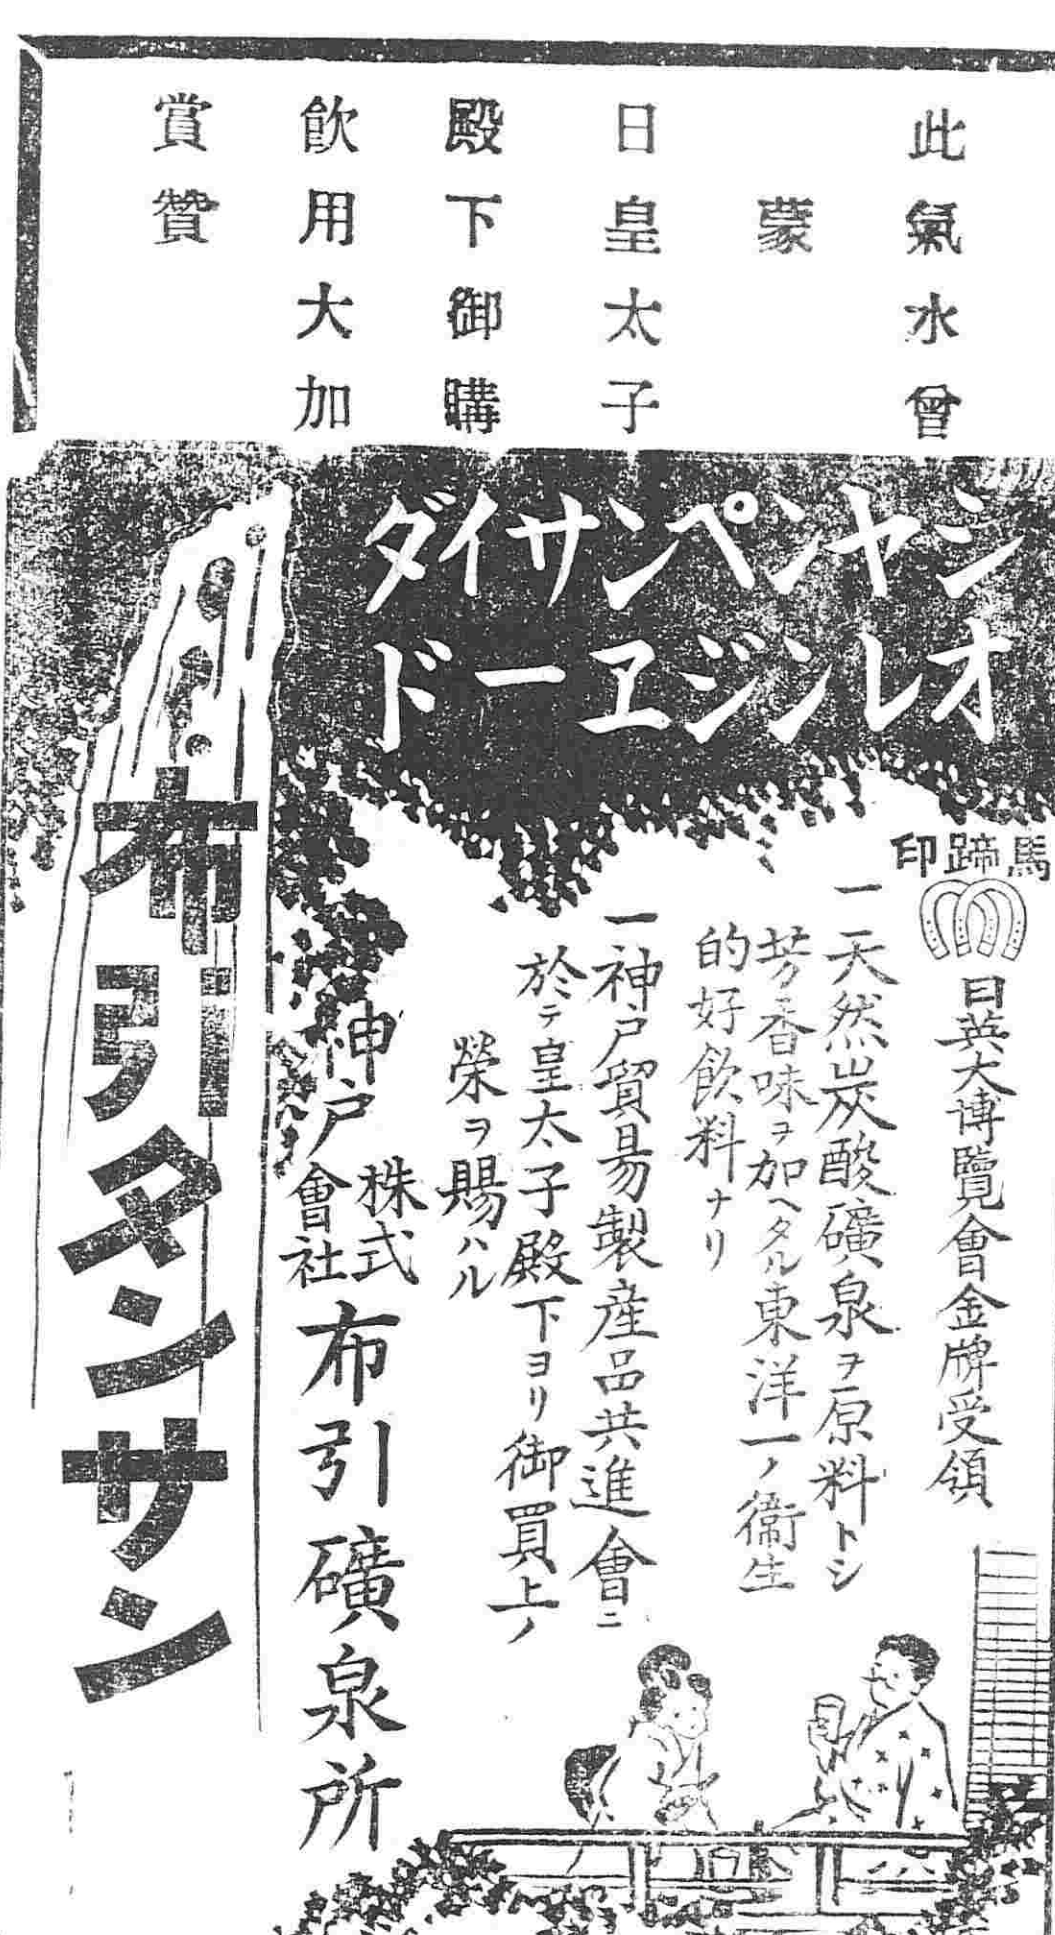 此氣水曾
蒙
日皇太子
殿下御購
飲用大加
賞贊
シヤンペンサイダ
オレンジエード
馬蹄印
日英大博覽會金牌受領
一天然炭酸礦泉ヲ原料トシ
芳香味ヲ加ヘタル東洋一ノ衞生
的好飲料ナリ
一神戸貿易製産品共進會ニ
於テ皇太子殿下ヨリ御買上ノ
榮ヲ賜ハル
神戸
株式
會社
布引礦泉所
布引タンサン